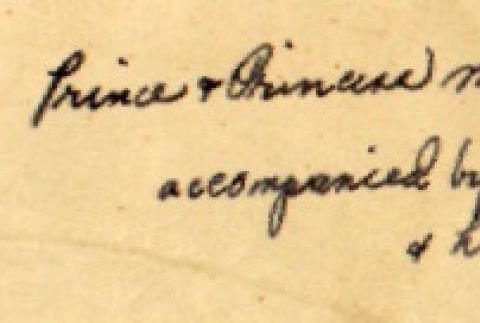 Prince + Princess
accompanied by
+